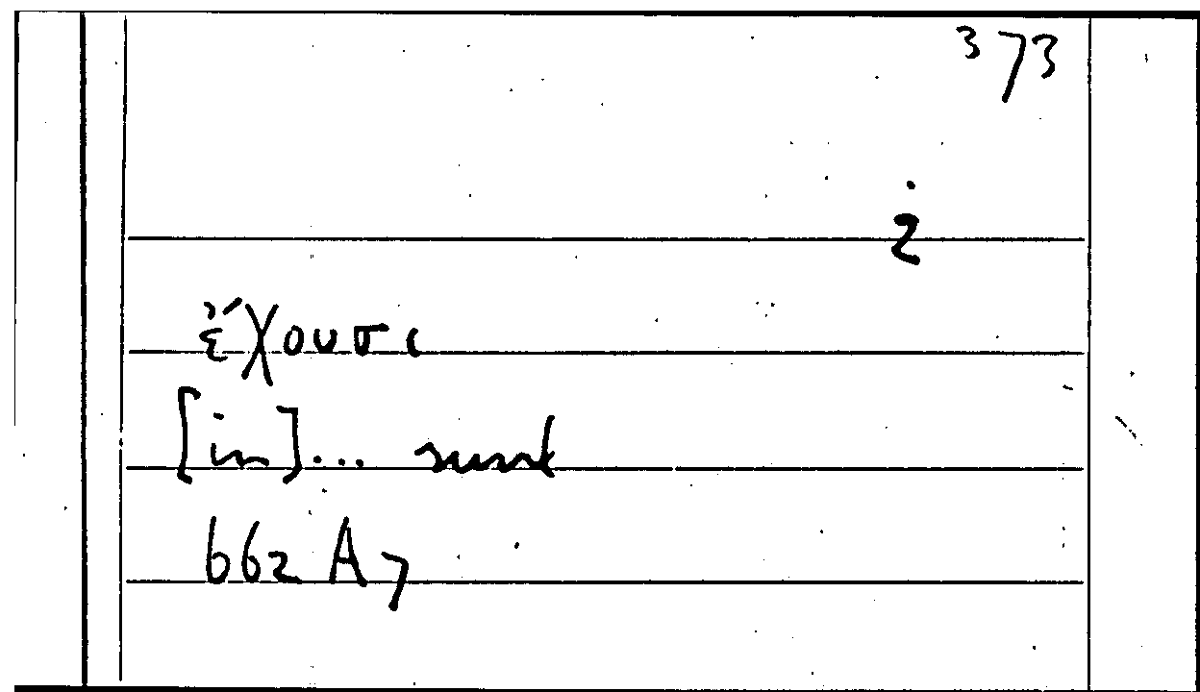 373
i
ἔχουσι
[in]... sunt
662 A7